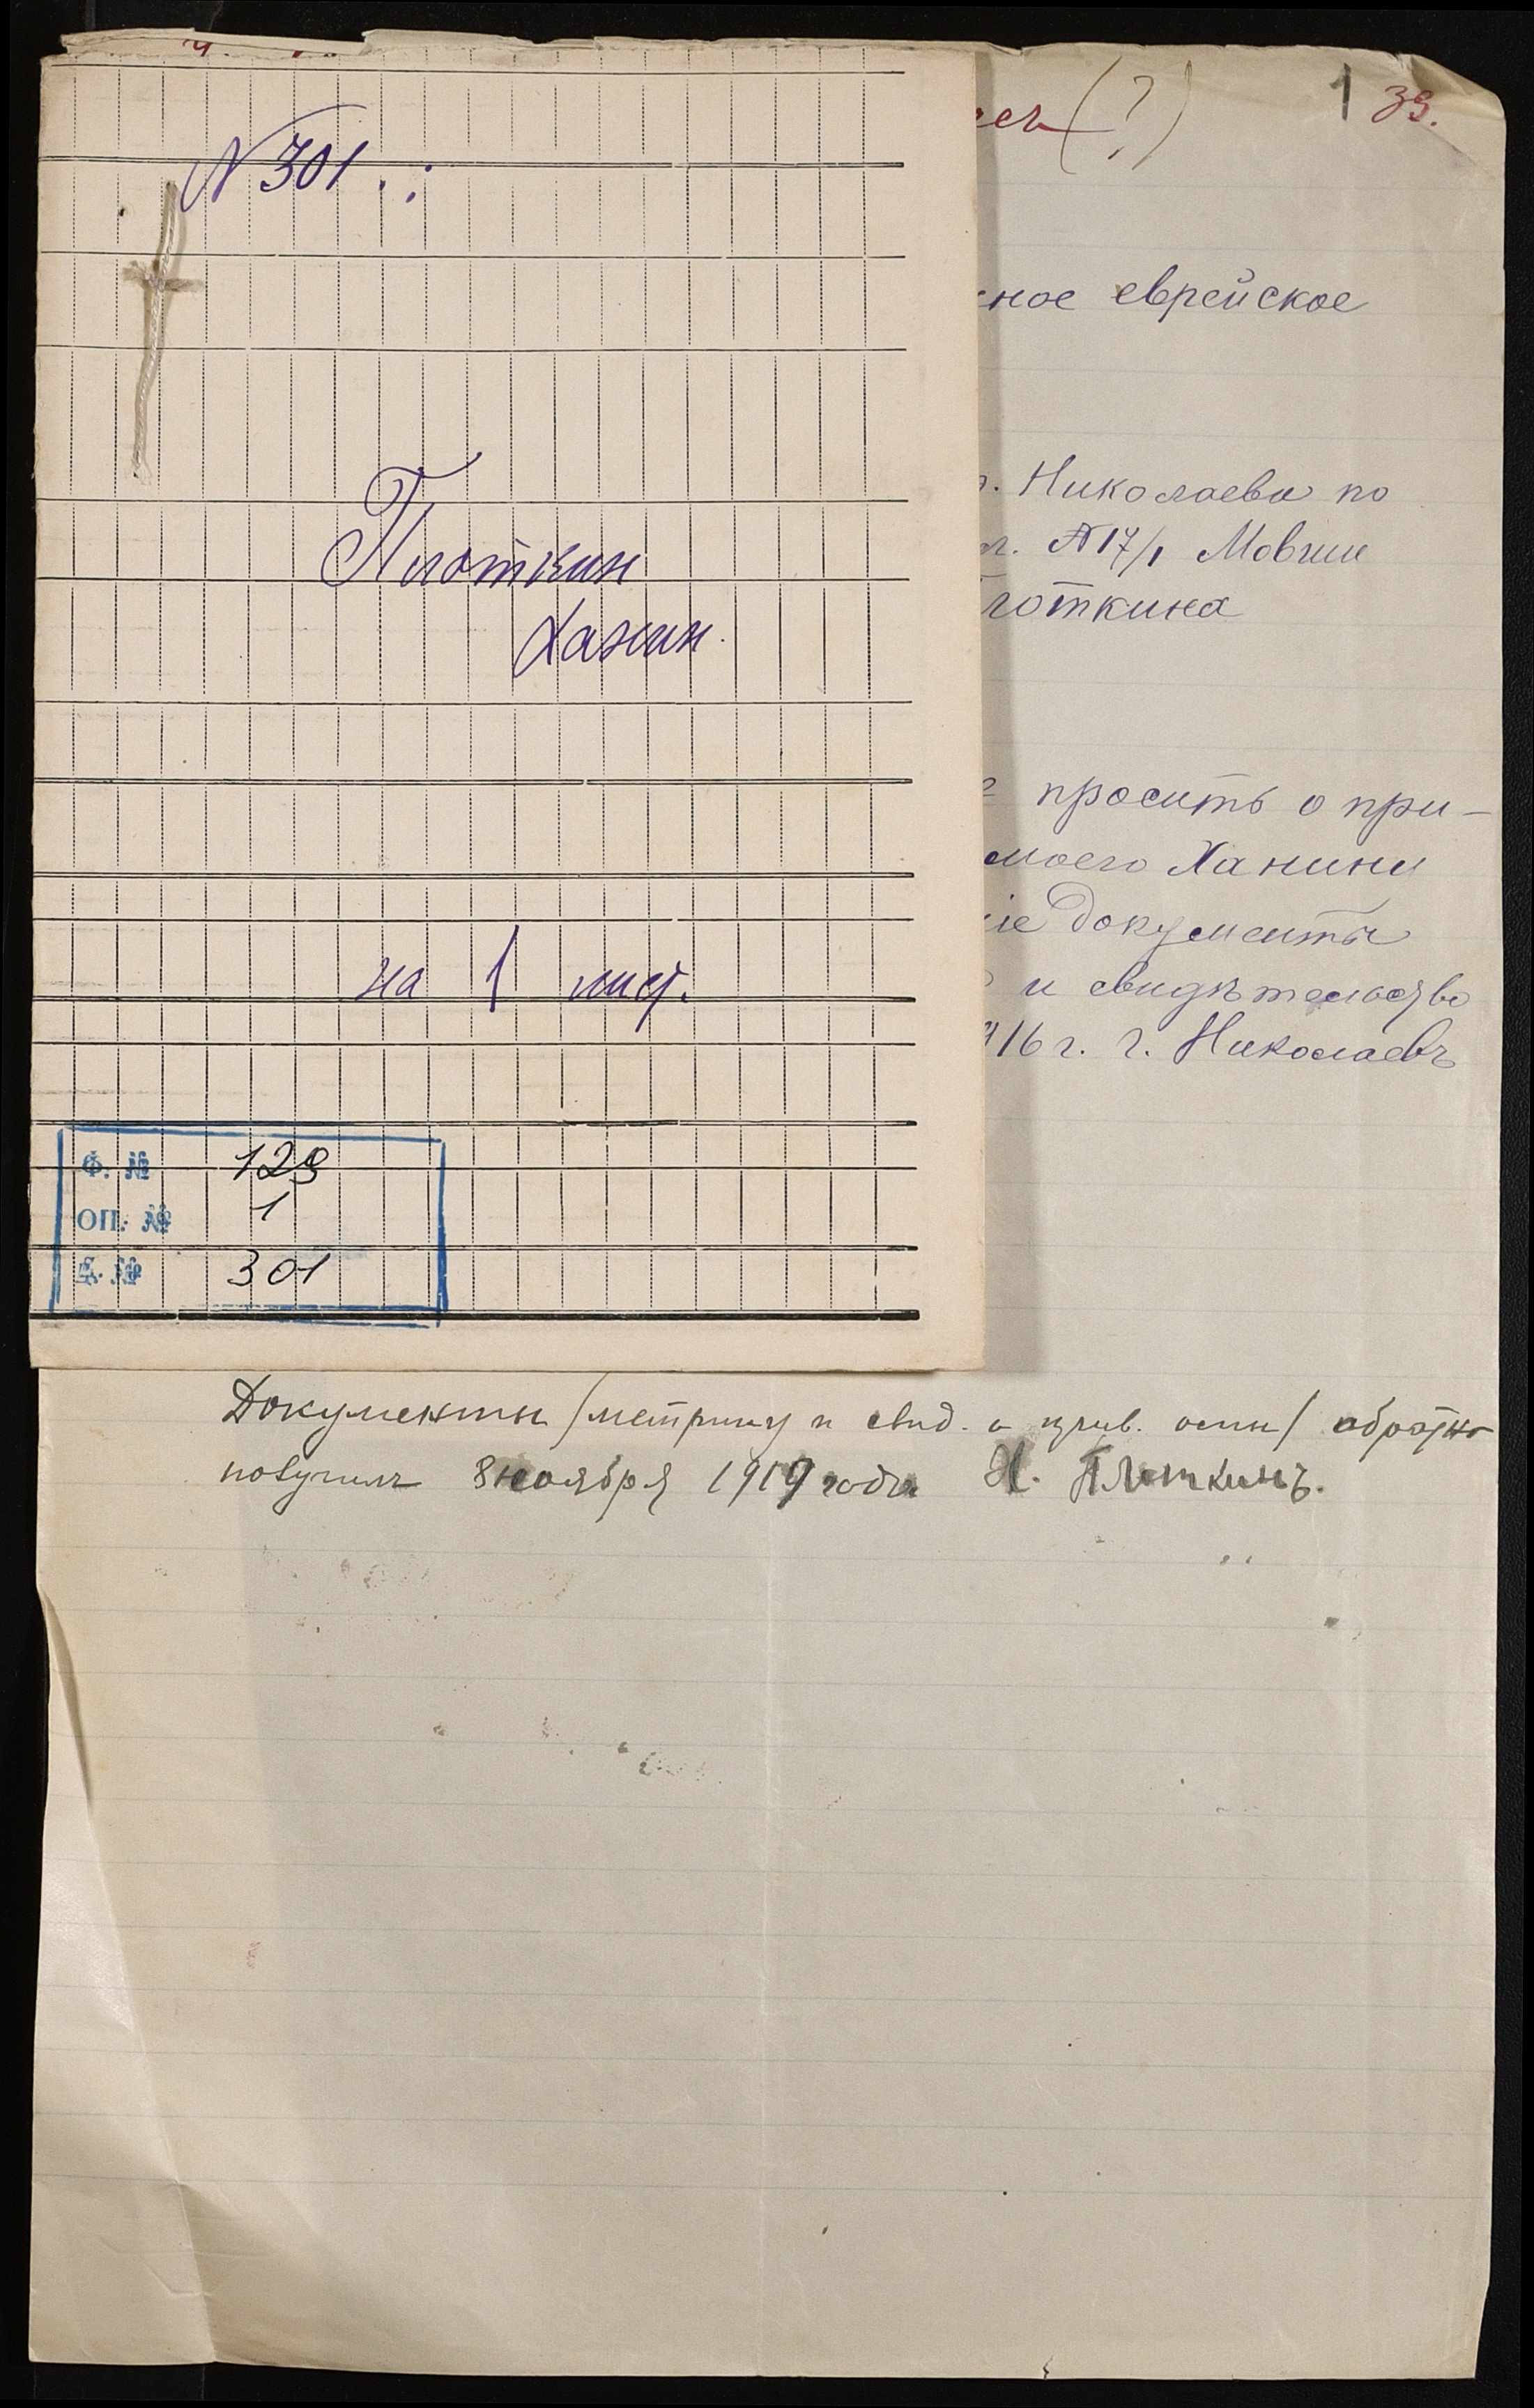 N 301.
Плоткин
Ханин.
на 1 лист.
Ф. № 129
ОП. № 1
Д. № 301
(?) 1 39.
ное еврейское
г. Николаева по
№ 17/1 Мовши
лоткина
просить о при-
моего Ханини
іе документы
и свидѣтельство
916 г. г. Николаевъ
Документы /метрику и свид. о прив. оспы/ обратно
получилъ 8 ноября 1919 года Х. Плоткинъ.